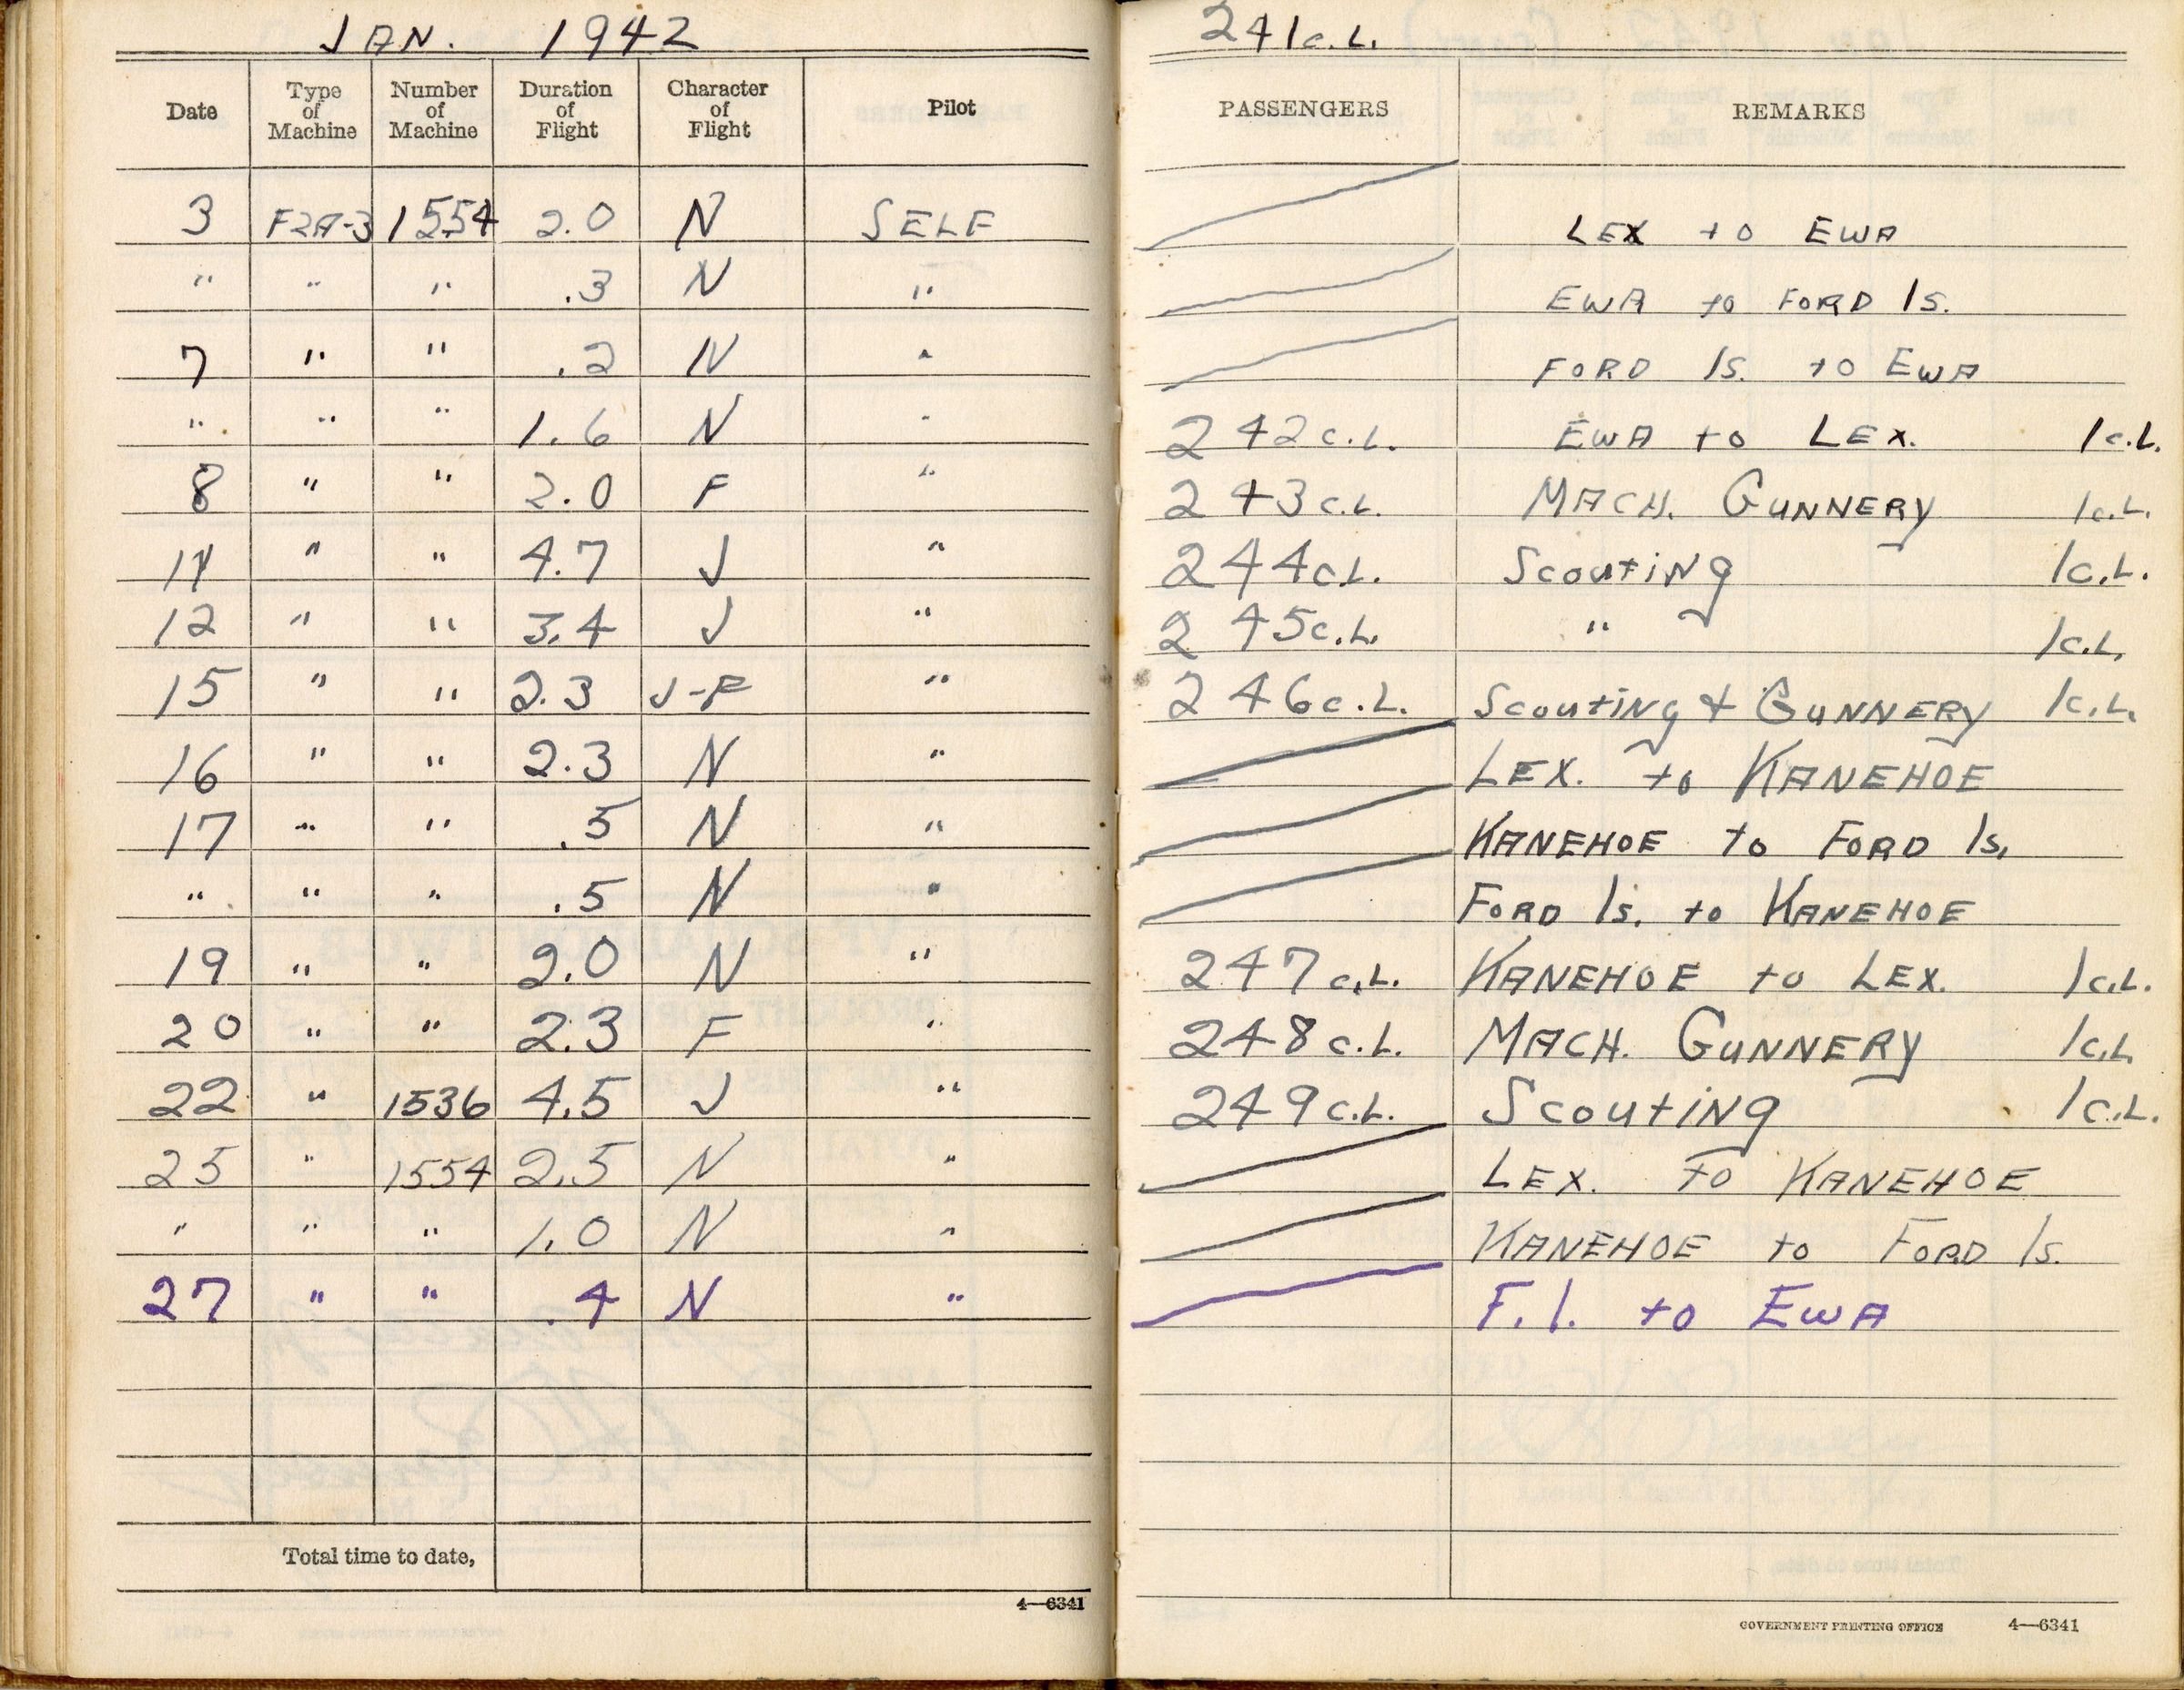 JAN. 1942
Date Type of Machine Number of Machine Duration of Flight Character of Flight Pilot
3 F2A-3 1554 2.0 N SELF
" " " .3 N "
7 " " .2 N "
" " " 1.6 N "
8 " " 2.0 F "
11 " " 4.7 J "
12 " " 3.4 J "
15 " " 2.3 J-F "
16 " " 2.3 N "
17 " " .5 N "
" " " .5 N "
19 " " 2.0 N "
20 " " 2.3 F "
22 " 1536 4.5 J "
25 " 1554 2.5 N "
" " " 1.0 N "
27 " " .4 N "
Total time to date,
4—6341
241 c.L.
PASSENGERS REMARKS
LEX to EWA
EWA to FORD Is.
FORD Is. to EWA
242 c.L. EWA to LEX. 1 c.L.
243 c.L. MACH. GUNNERY 1 c.L.
244 c.L. Scouting 1 c.L.
245 c.L. " 1 c.L.
246 c.L. Scouting & GUNNERY 1 c.L.
LEX. to KANEHOE
KANEHOE to FORD Is.
FORD Is. to KANEHOE
247 c.L. KANEHOE to LEX. 1 c.L.
248 c.L. MACH. GUNNERY 1 c.L.
249 c.L. Scouting 1 c.L.
LEX. to KANEHOE
KANEHOE to FORD Is.
F.I. to EWA
GOVERNMENT PRINTING OFFICE 4—6341